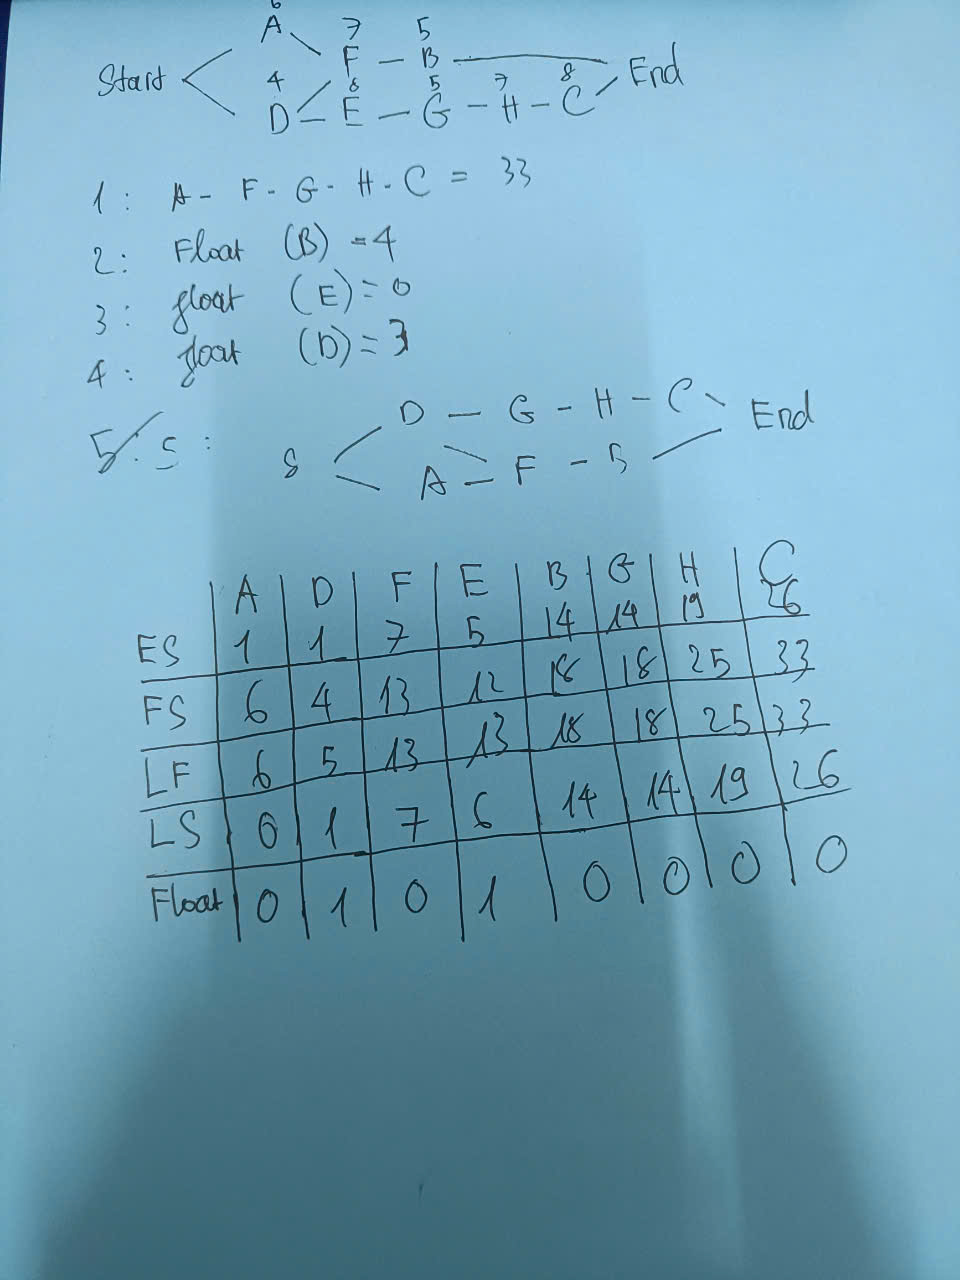 6 7 5
A
F - B
Start End
4 8 5 7 8
D - E - G - H - C
1: A - F - G - H - C = 33
2: Float (B) = 4
3: float (E) = 0
4: float (D) = 3
5: 5: D - G - H - C
End
S
A - F - B
A D F E B G H C
ES 1 1 7 5 14 14 19 26
FS 6 4 13 12 18 18 25 33
LF 6 5 13 13 18 18 25 33
LS 0 1 7 6 14 14 19 26
Float 0 1 0 1 0 0 0 0